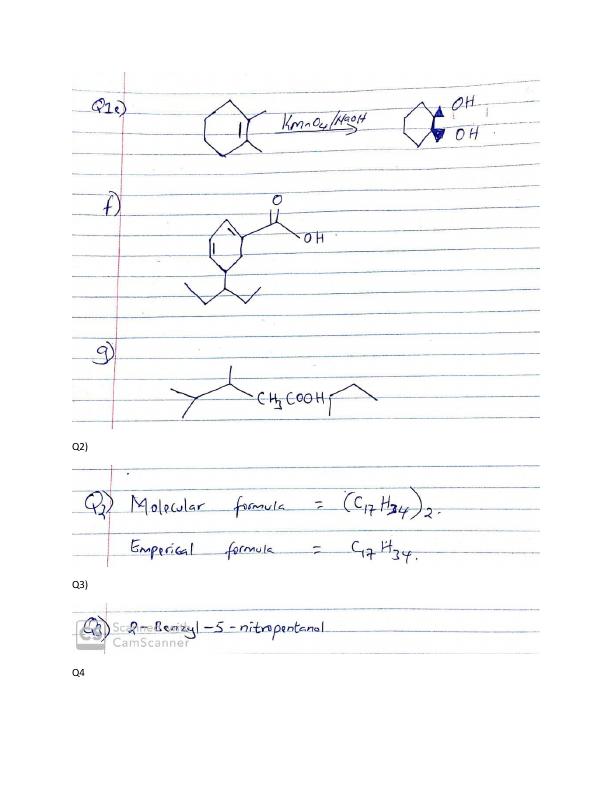 Q1e)
KMnO4/NaOH
OH
OH
f)
O
OH
g)
CH3COOH
Q2)
Q2) Molecular formula = (C17H34)2.
Emperical formula = C17H34.
Q3)
Q3) 2-Benzyl-5-nitropentanol
CS Scanned with
CamScanner
Q4